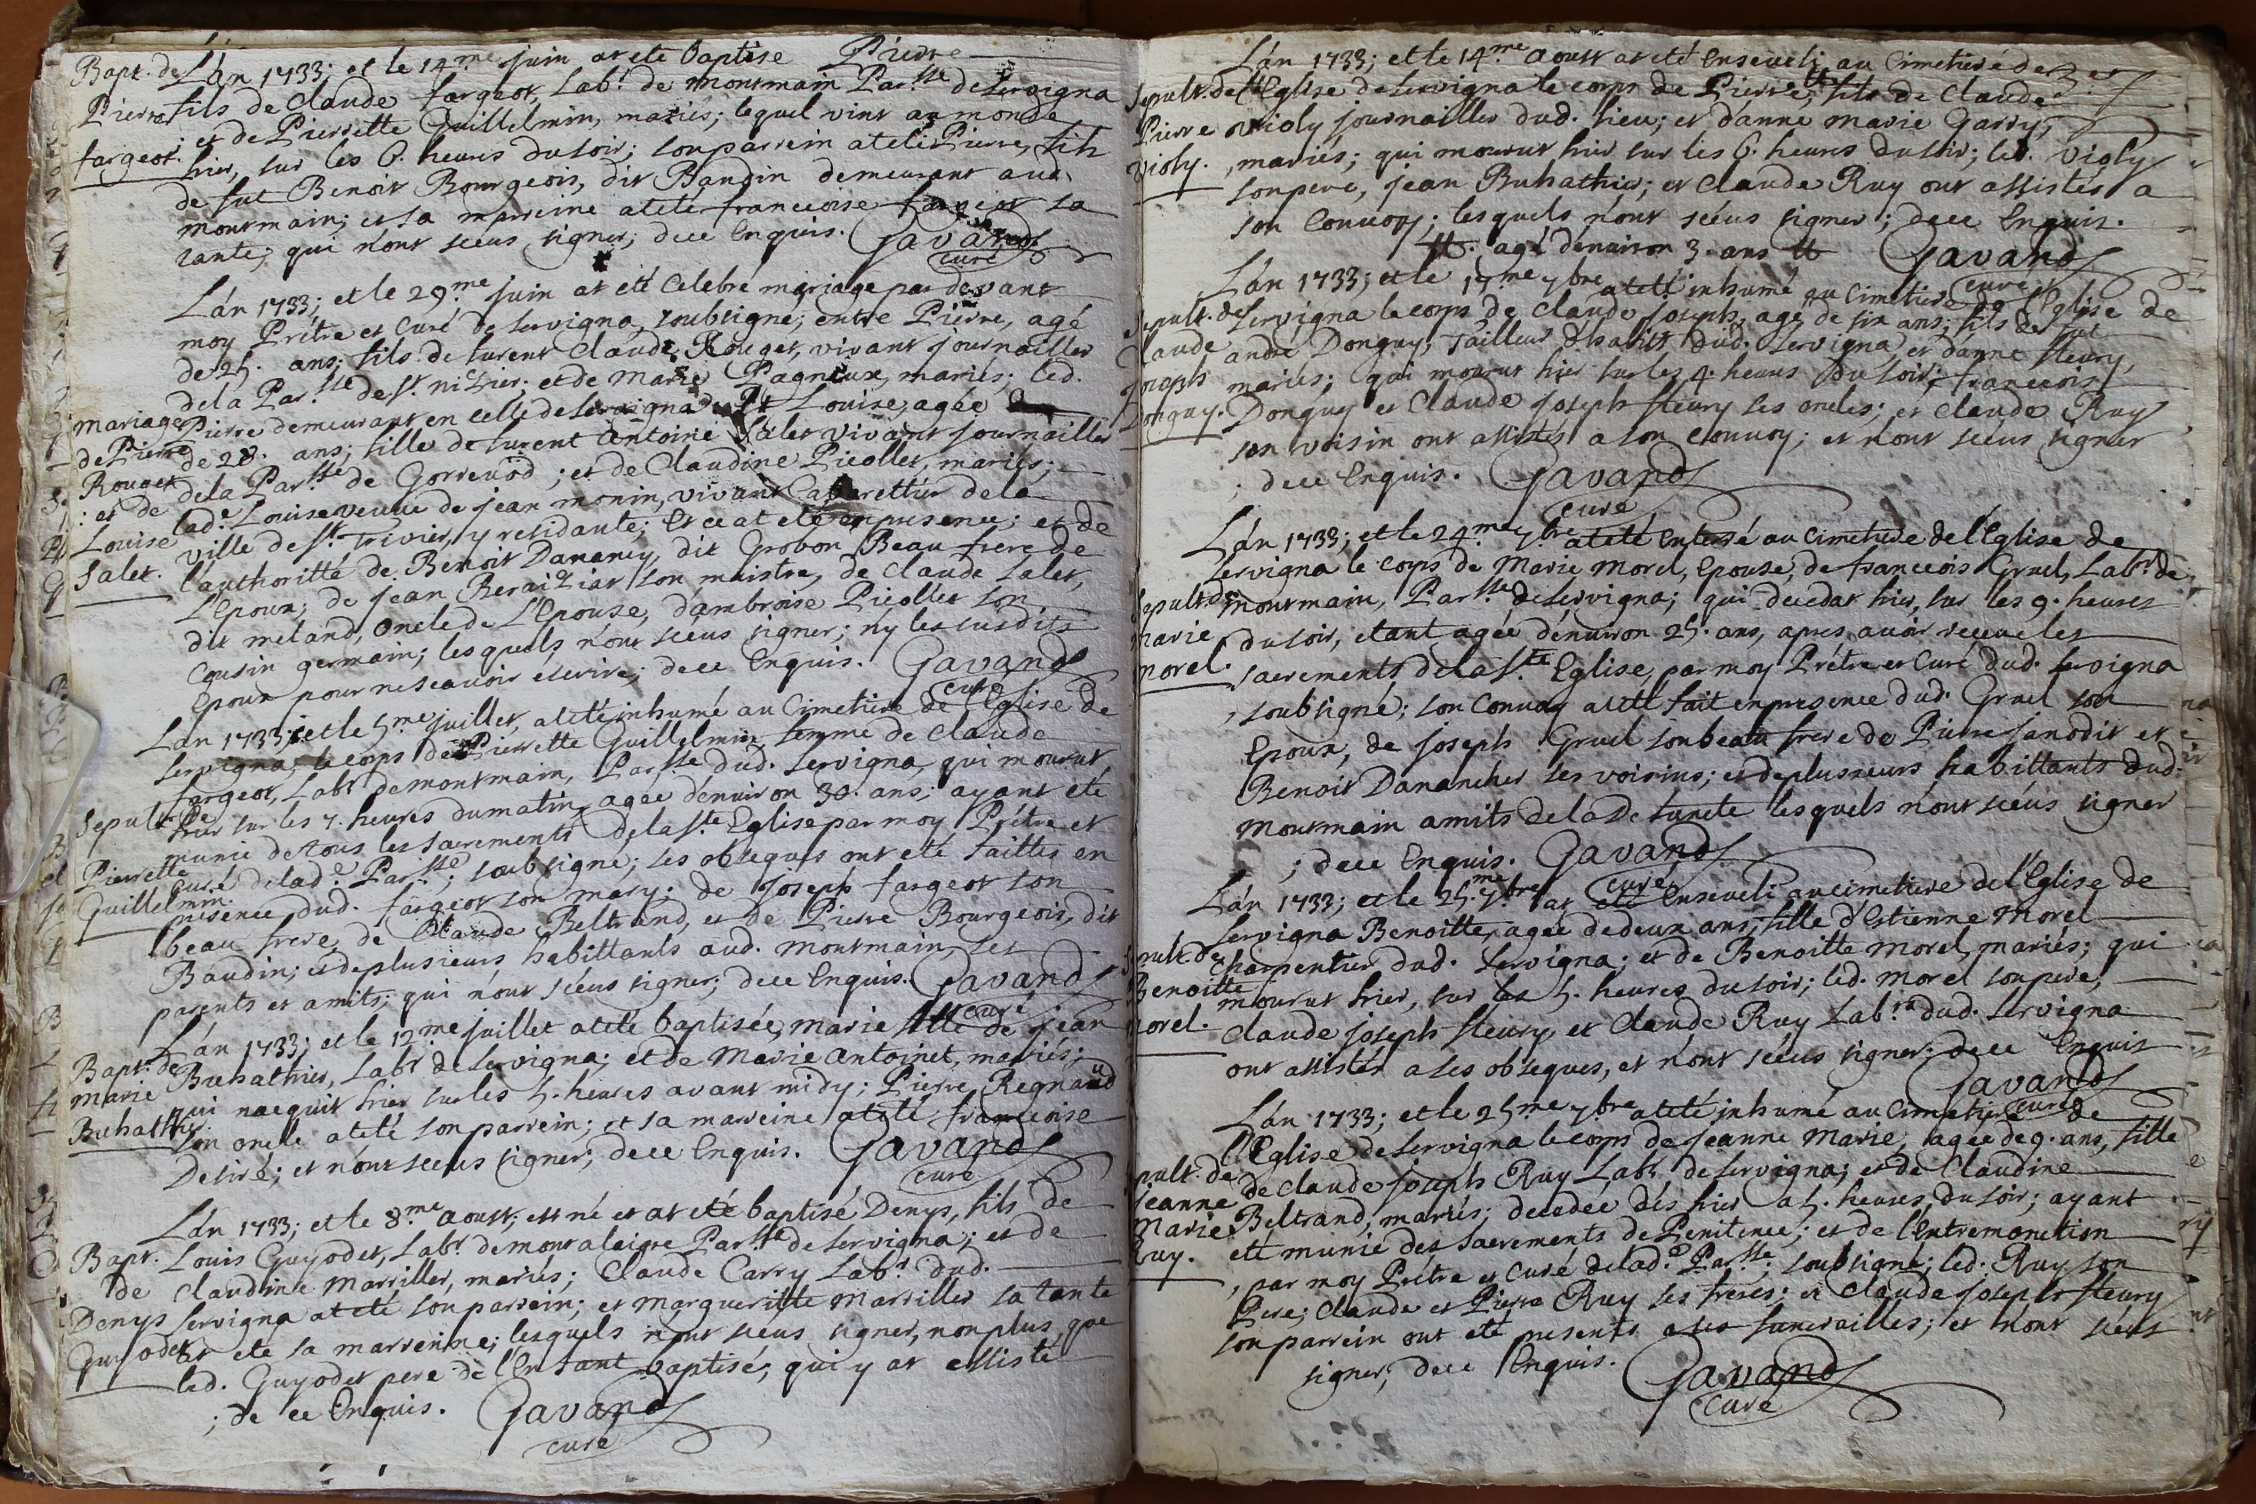 Bapt. de
Pierre
fargeot.
L'an 1733; et le 14.me juin at eté baptisé Pierre
fils de Claude fargeot, Lab.r de montmain Par.sse de Servigna
; et de Pierrette Guillelmin, mariés; lequel vint au monde
hier, sur les 6. heures du soir; son parrein at eté Pierre, fils
de fut Benoit Bourgeois, dit Baudin demeurant aud.
montmain; et sa marreine at eté francoise fargeot sa
tante; qui n'ont sceus signer; de ce Enquis. Gavand
curé
mariage
de Pierre
Rouget
; et de
Louise
Salet.
L'an 1733; et le 29.me juin at eté Celebré mariage par devant
moy Prêtre et Curé de Servigna, soubsigné; entre Pierre, agé
de 25. ans; fils de furent Claude Rouget, vivant journaillier
de la Par.sse de st. nizier; et de Marie Pagneux, mariés; led.
Pierre demeurant en celle de Servigna Et Louise, agée
de 28. ans; fille de furent Antoine Salet vivant journaillier
de la Par.sse de Gorrevod; et de Claudine Picollet, mariés;
lad.e Louise veuve de jean monin, vivant Cabarettier de la
ville de st. Trivier, y residante; Et ce at eté en presence; et de
l'authoritté de Benoit Danancy, dit Grobon Beau frere de
L'Epoux, de jean Beraiziat son maistre, de Claude Salet,
dit meland, oncle de L'Epouse, d'ambroise Picollet son
Cousin germain; lesquels n'ont sceus signer; ny les susdits
Epoux pour ne scavoir escrire; de ce Enquis. Gavand
curé
Sepult. de
Pierrette
Guillelmin.
L'an 1733; et le 5.me juillet, at eté inhumé au Cimetiere de l'Eglise de
Servigna, le corps de Pierrette Guillelmin, femme de Claude
fargeot, Lab.r de montmain, Par.sse dud. Servigna, qui mourut
hier sur les 7. heures du matin, agée d'environ 30. ans; ayant eté
munie de tous les sacrements de la s.te Eglise par moy Prêtre et
Curé de lad.e Par.sse; soubsigné; ses obseques ont eté faittes en
presence dud. fargeot son mary; de joseph fargeot son
beau frere, de Claude Beltrand, et de Pierre Bourgeois, dit
Baudin; et de plusieurs habittants aud. montmain, ses
parents et amits; qui n'ont sceus signer; de ce Enquis. Gavand
curé
Bapt. de
marie
Buhathier
L'an 1733; et le 12.me juillet at eté baptisée, marie fille de jean
Buhathier, Lab.r de Servigna; et de Marie Antoinet, mariés;
qui nacquit hier sur les 5. heures avant midy; Pierre Regnaud
son oncle at eté son parrein; et sa marreine at eté francoise
Desiré; et n'ont sceus signer; de ce Enquis. Gavand
curé
Bapt.
de
Denys
Guyodet
L'an 1733; et le 8.me aoust; est né et at eté baptisé Denys, fils de
Louis Guyodet, Lab.r de montalaigre Par.sse de Servigna; et de
Claudine Marriller, mariés; Claude Carry Lab.r dud.
Servigna at eté son parrein; et Margueritte Marriller sa tante
at eté sa marreine; lesquels n'ont sceus signer, non plus que
led. Guyodet pere de l'Enfant baptisé; qui y at assisté
; de ce Enquis. Gavand
curé
Sepult. de
Pierre
Violy.
L'an 1733; et le 14.me aoust at eté Enseveli au Cimetiere de
l'Eglise de Servigna le corps de Pierre, fils de Claude
Violy journaillier dud. lieu; et d'anne Marie Garry;
mariés; qui mourut hier sur les 6. heures du soir; led. Violy
son pere, jean Buhathier; et Claude Ruy ont assistés a
son Convoy; lesquels n'ont sceus signer; de ce Enquis.
agé d'environ 3. ans Gavand
curé
Sepult. de
Claude
Joseph
Donguy.
L'an 1733; et le 17.me 7bre at eté inhumé au Cimetiere de l'Eglise de
Servigna le corps de Claude Joseph, agé de six ans; fils de
andré Donguy, Tailleur d'habits dud. Servigna, et d'anne fleury,
mariés; qui mourut hier sur les 4. heures du soir; francois
Donguy et Claude joseph fleury ses oncles; et Claude Ruy
son voisin ont assistés a son Convoy; et n'ont sceus signer
; de ce Enquis. Gavand
curé
Sepult. de
Marie
Morel.
L'an 1733; et le 24.me 7bre at eté Enterré au Cimetiere de l'Eglise de
Servigna le corps de Marie Morel, Epouse, de francois Gruel, Lab.r de
Montmain, Par.sse de Servigna; qui decedat hier, sur les 9. heures
du soir, etant agée d'environ 25. ans, apres avoir receu les
sacrements de la s.te Eglise, par moy Prêtre et Curé dud. Servigna
, soubsigné; son Convoy at eté fait en presence dud. Gruel son
Epoux, de joseph Gruel son beau frere de Pierre janodit et
Benoit Dananches ses voisins; et de plusieurs habittants dud.
Montmain amits de la Defunete lesquels n'ont sceus signer
; de ce Enquis. Gavand
curé
Sepult. de
Benoitte
Morel.
L'an 1733; et le 25.me 7bre at eté Enseveli au cimetiere de l'Eglise de
Servigna Benoitte, agée de deux ans; fille d'Estienne Morel
charpentier dud. Servigna; et de Benoitte Morel, mariés; qui
mourut hier, sur les 5. heures du soir; led. Morel son pere,
Claude joseph fleury et Claude Ruy Lab.rs dud. Servigna
ont assistés a ses obseques, et n'ont sceus signer; de ce Enquis
Gavand
curé
Sepult. de
Jeanne
Marie
Ruy.
L'an 1733; et le 25.me 7bre at eté inhumé au Cimetiere de
l'Eglise de Servigna le corps de Jeanne Marie, agée de 9. ans, fille
de Claude joseph Ruy Lab.r de Servigna; et de Claudine
Beltrand, mariés; decedée dés hier a 5. heures du soir; ayant
eté munie des sacrements de Penitence; et de l'Extremonction
, par moy Prêtre et Curé de lad.e Par.sse; soubsigné; led. Ruy son
Pere; Claude et Pierre Ruy ses freres; et Claude joseph fleury
son parrein ont eté presents a ses funerailles; et n'ont sceus
signer; de ce Enquis. Gavand
curé